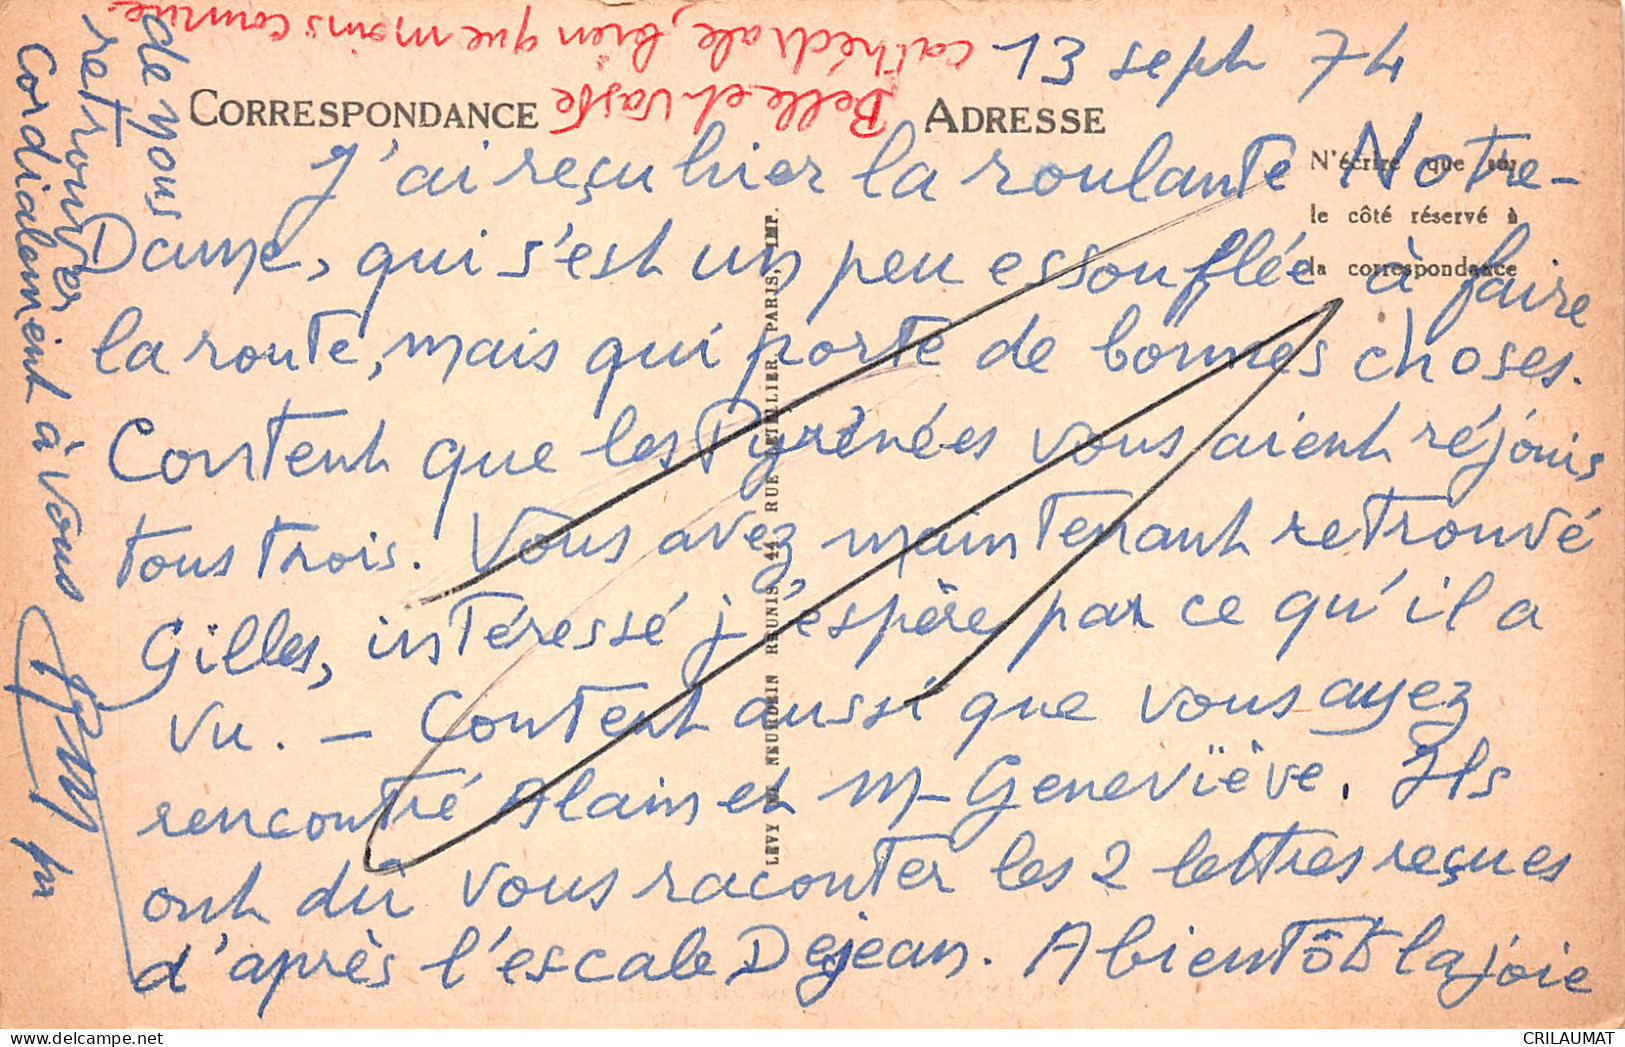 Belle et vaste
cathédrale, bien que moins connue.
13 sept 74
CORRESPONDANCE
ADRESSE
N'écrire que sur
le côté réservé à
la correspondance
J'ai reçu hier la roulante Notre-
Dame, qui s'est un peu essouflée à faire
la route, mais qui porte de bonnes choses.
Content que les Pyrénées vous aient réjouis
tous trois. Vous avez maintenant retrouvé
Gilles, intéressé j'espère par ce qu'il a
vu. — Content aussi que vous ayez
rencontré Alain et M-Geneviève. Ils
ont dû vous raconter les 2 lettres reçues
d'après l'escale Dejean. A bientôt la joie
de vous
retrouver
Cordialement à vous
LEVY ET NEURDEIN REUNIS, 44, RUE LETELLIER, PARIS, IMP.
CRILAUMAT